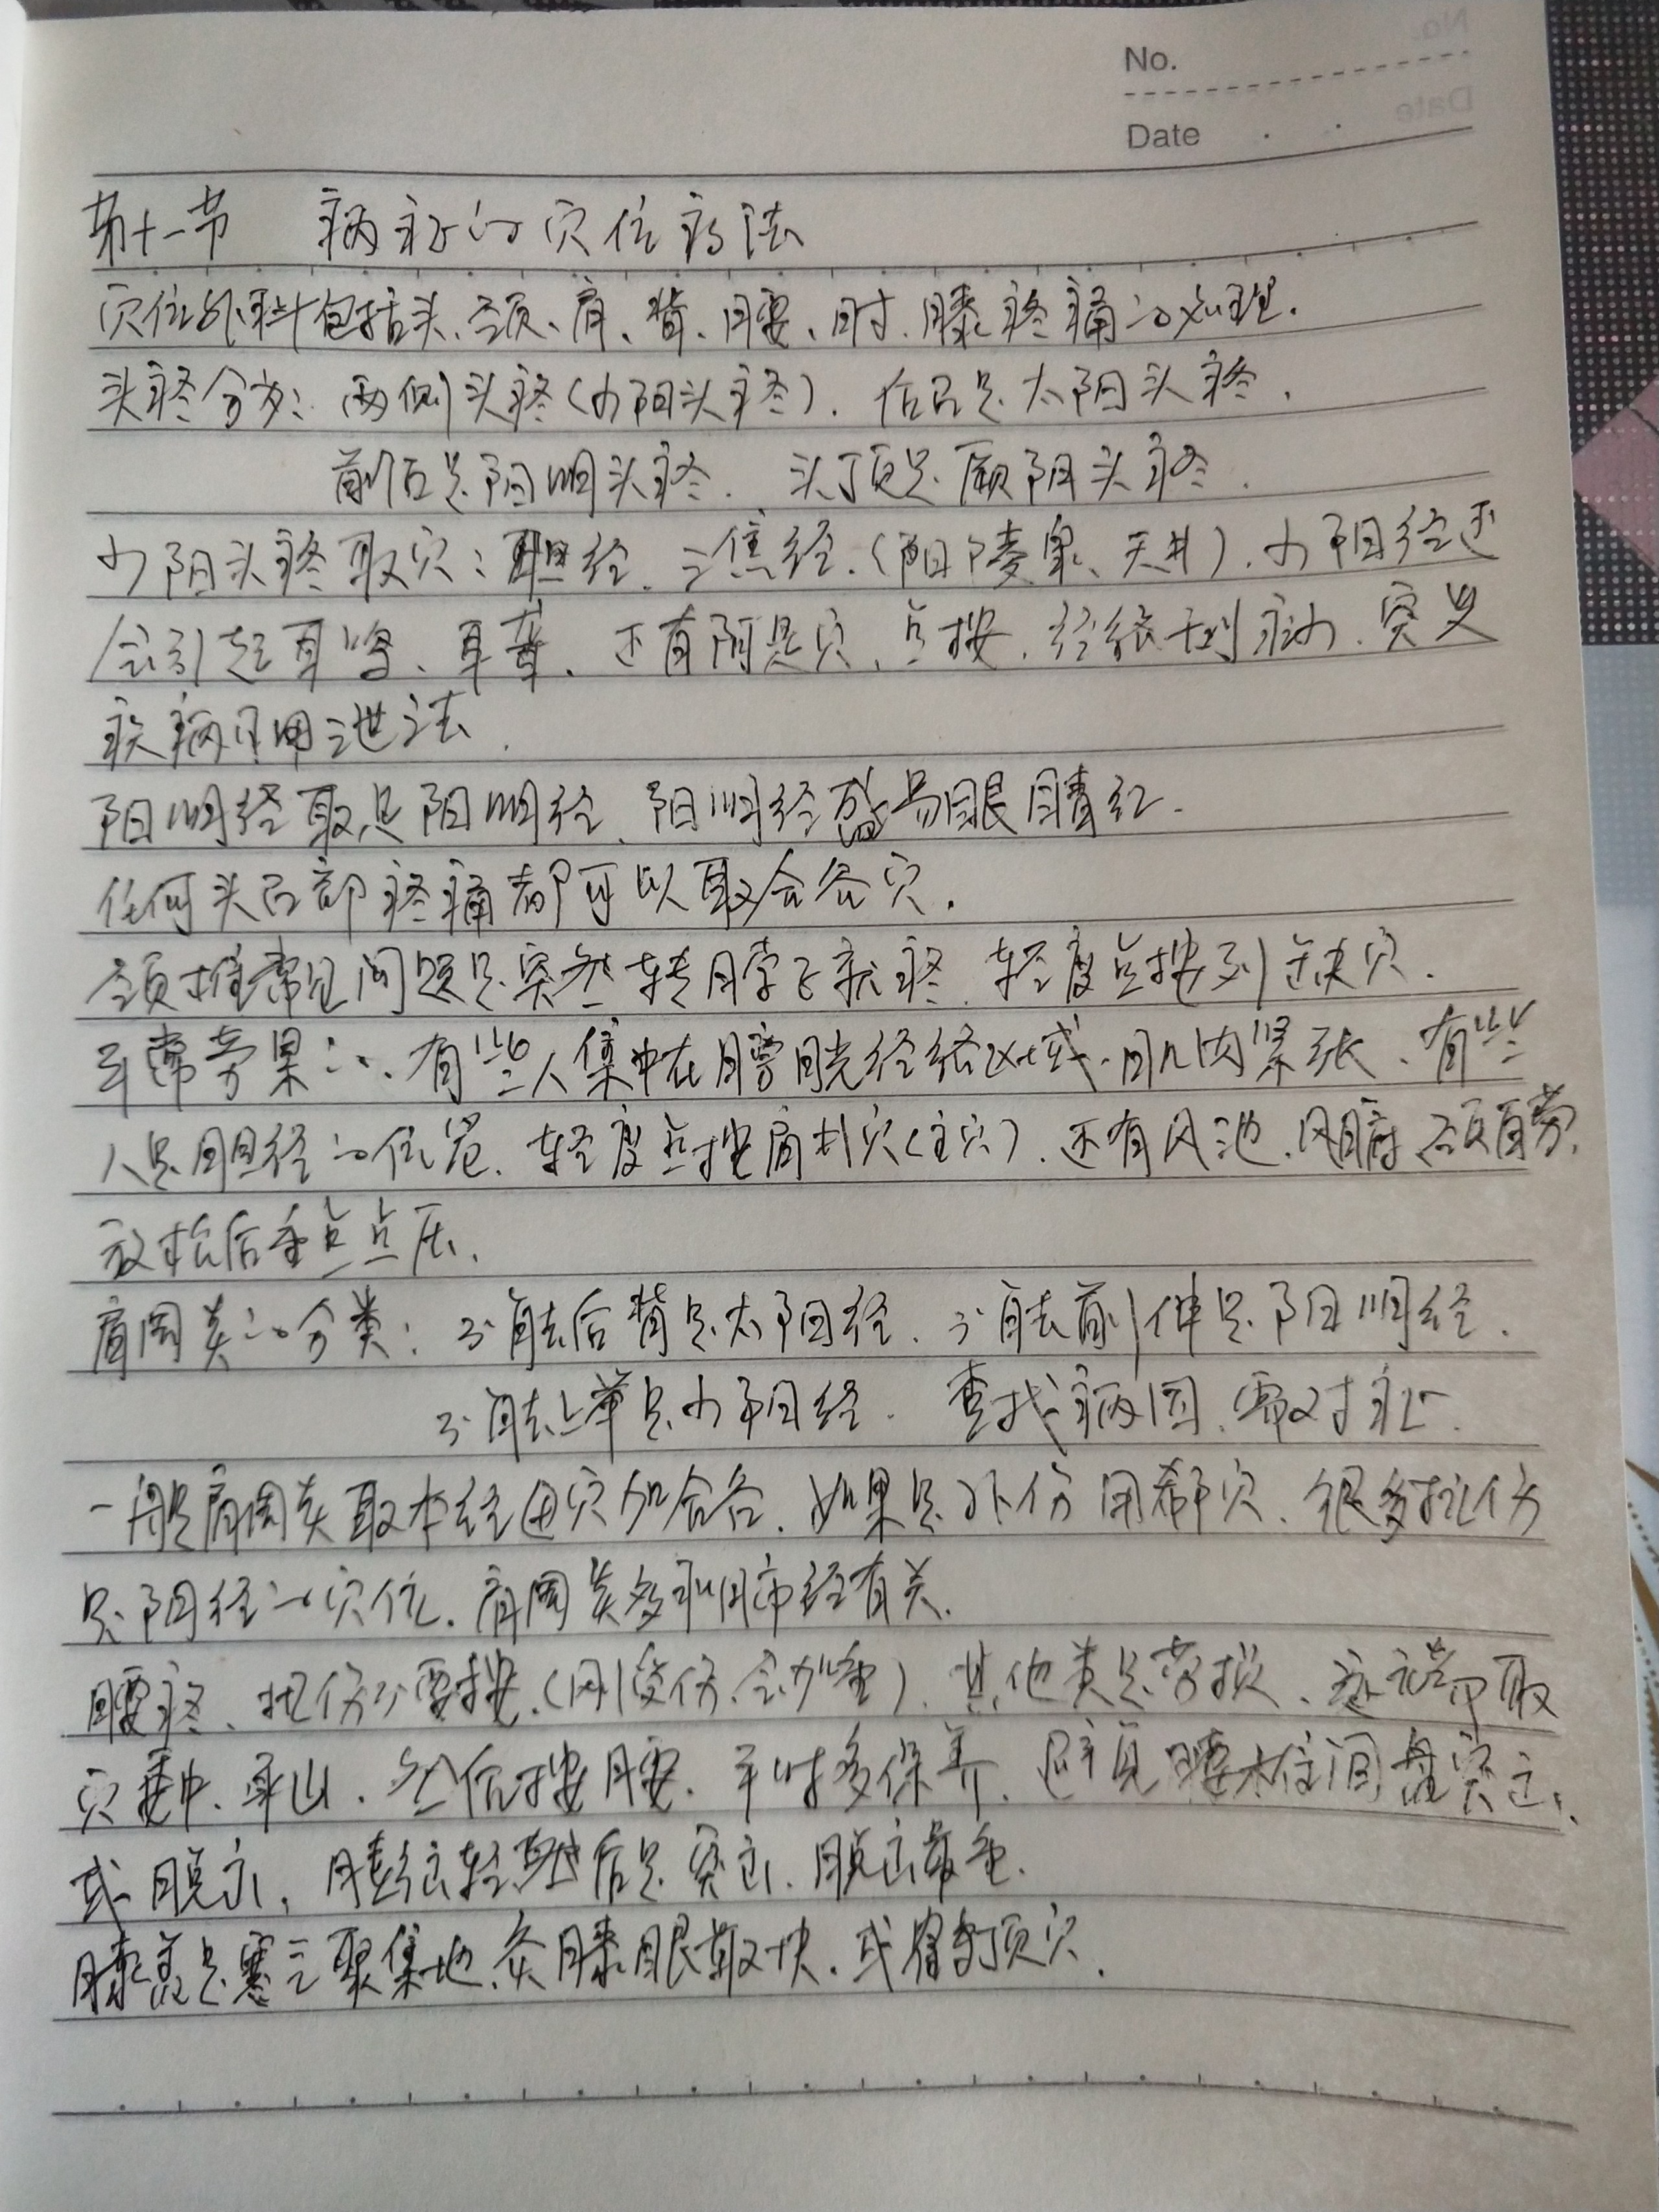 No.
Date
第十一节 病证的穴位疗法
穴位外科包括头、颈、肩、背、腰、肘、膝疼痛的处理.
头疼分为: 两侧头疼(少阳头疼). 后面是太阳头疼.
前后是阳明头疼. 头顶是厥阴头疼.
少阳头疼取穴: 胆经. 三焦经. (阳陵泉、天井). 少阳经还
会引起耳鸣、耳聋. 还有阿是穴、点按. 经络
疾病可用泄法.
阳明经取足阳明经. 阳明经盛易眼睛红.
任何头面部疼痛都可以取合谷穴.
颈椎常见问题是突然转脖子就疼. 轻度点按列缺穴.
有些人集中在膀胱经络区域. 肌肉紧张. 有些
人是胆经的位置. 轻度点按肩井穴(主穴). 还有风池. 风府. 颈百劳.
放松后重点点压.
肩周炎的分类: 不能后背是太阳经. 不能前伸是阳明经.
不能上举是少阳经. 查找病因. 需对证.
一般肩周炎取本经穴加合谷. 如果是外伤用郄穴. 很多扭伤
是阳经的穴位. 肩周炎多和肺经有关.
腰疼. 扭伤不要按. (刚受伤会加重). 其他类是劳损. 取
穴委中. 承山. 然后按腰. 平时多保养. 避免腰椎间盘突出.
或脱出. 膨出轻然后是突出. 脱出最重.
膝盖是寒气聚集地. 灸膝眼最快. 或鹤顶穴.